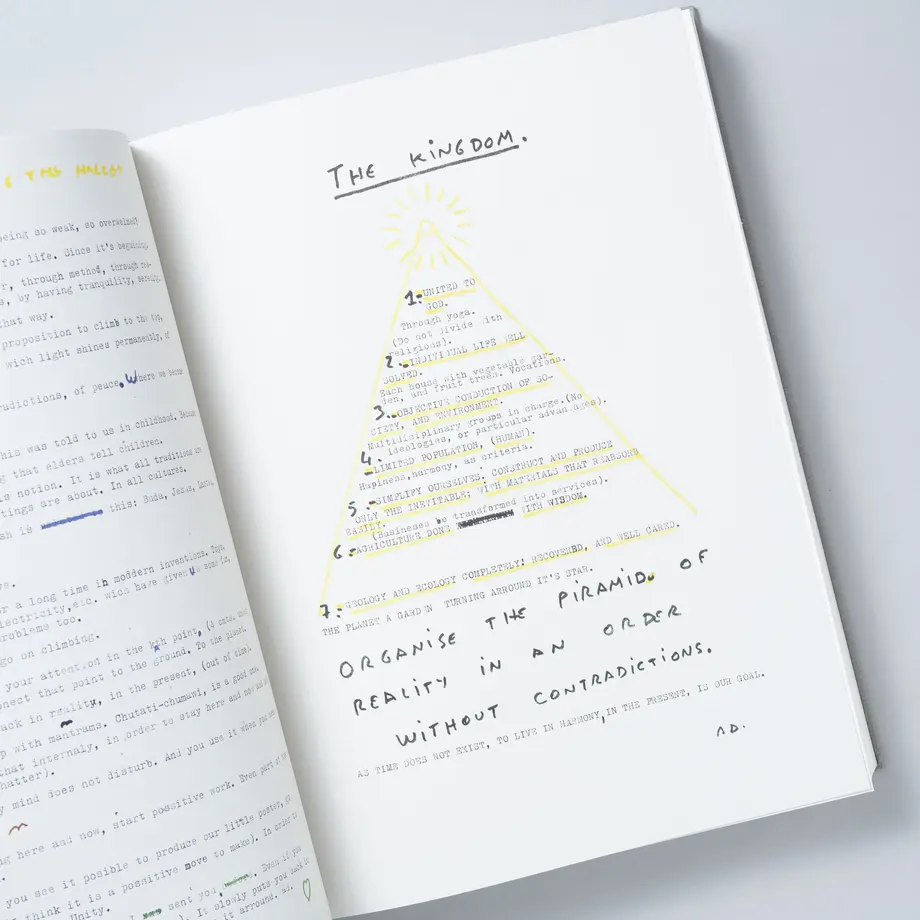 THE HALLS
being so weak, so overwelmed?
for life. Since it's beginning,
r, through method, through
s, by having tranquility,
that way.
proposition to climb to the top,
wich light shines permanently, of
radictions, of peace, Where we
his was told to us in childhood. Because
g that elders tell children.
is notion. It is what all traditions
tings are about. In all cultures,
sh is this: Buda, Jesus,
ve.
r a long time in modern inventions.
lectricity, etc. wich have given us some
problems too.
go on climbing.
your attention in the point, (4 cmts.
nect that point to the ground. To the planet,
ack in reality, in the present, (out of time).
p with mantrams. Chutati-chumuwi, is a good one.
that internaly, in order to stay here and
hatter).
y mind does not disturb. And you use it when you
ng here and now, start possitive work. Even part of
you see it posible to produce our little poster,
think it is a possitive move to make). In order to
Unity. I sent you, . Even if you
). It slowly puts you back in
it arround. ad.
THE KINGDOM.
1.-UNITED TO
GOD.
Through yoga.
(Do not divide with
religions).
2.-INDIVIDUAL LIFE WELL
SOLVED.
Each house with vegetable gar-
den, and fruit trees. Vocations.
3.-OBJECTIVE CONDUCTION OF SO-
CIETY, AND ENVIRONMENT.
Multidiciplinary groups in charge.(No
ideologies, or particular advantages).
4.-LIMITED POPULATION, (HUMAN).
Hapiness,harmony, as criteria.
5.-SIMPLIFY OURSELVES. CONSTRUCT AND PRODUCE
ONLY THE INEVITABLE; WITH MATERIALS THAT REABSORB
EASILY.
(Busineses be transformed into services).
6.-AGRICULTURE DONE WITH WISDOM.
7.-GEOLOGY AND ECOLOGY COMPLETELY; RECOVERED, AND WELL CARED.
THE PLANET A GARDEN TURNING ARROUND IT'S STAR.
ORGANISE THE PIRAMID OF
REALITY IN AN ORDER
WITHOUT CONTRADICTIONS.
AS TIME DOES NOT EXIST, TO LIVE IN HARMONY,IN THE PRESENT, IS OUR GOAL.
AD.